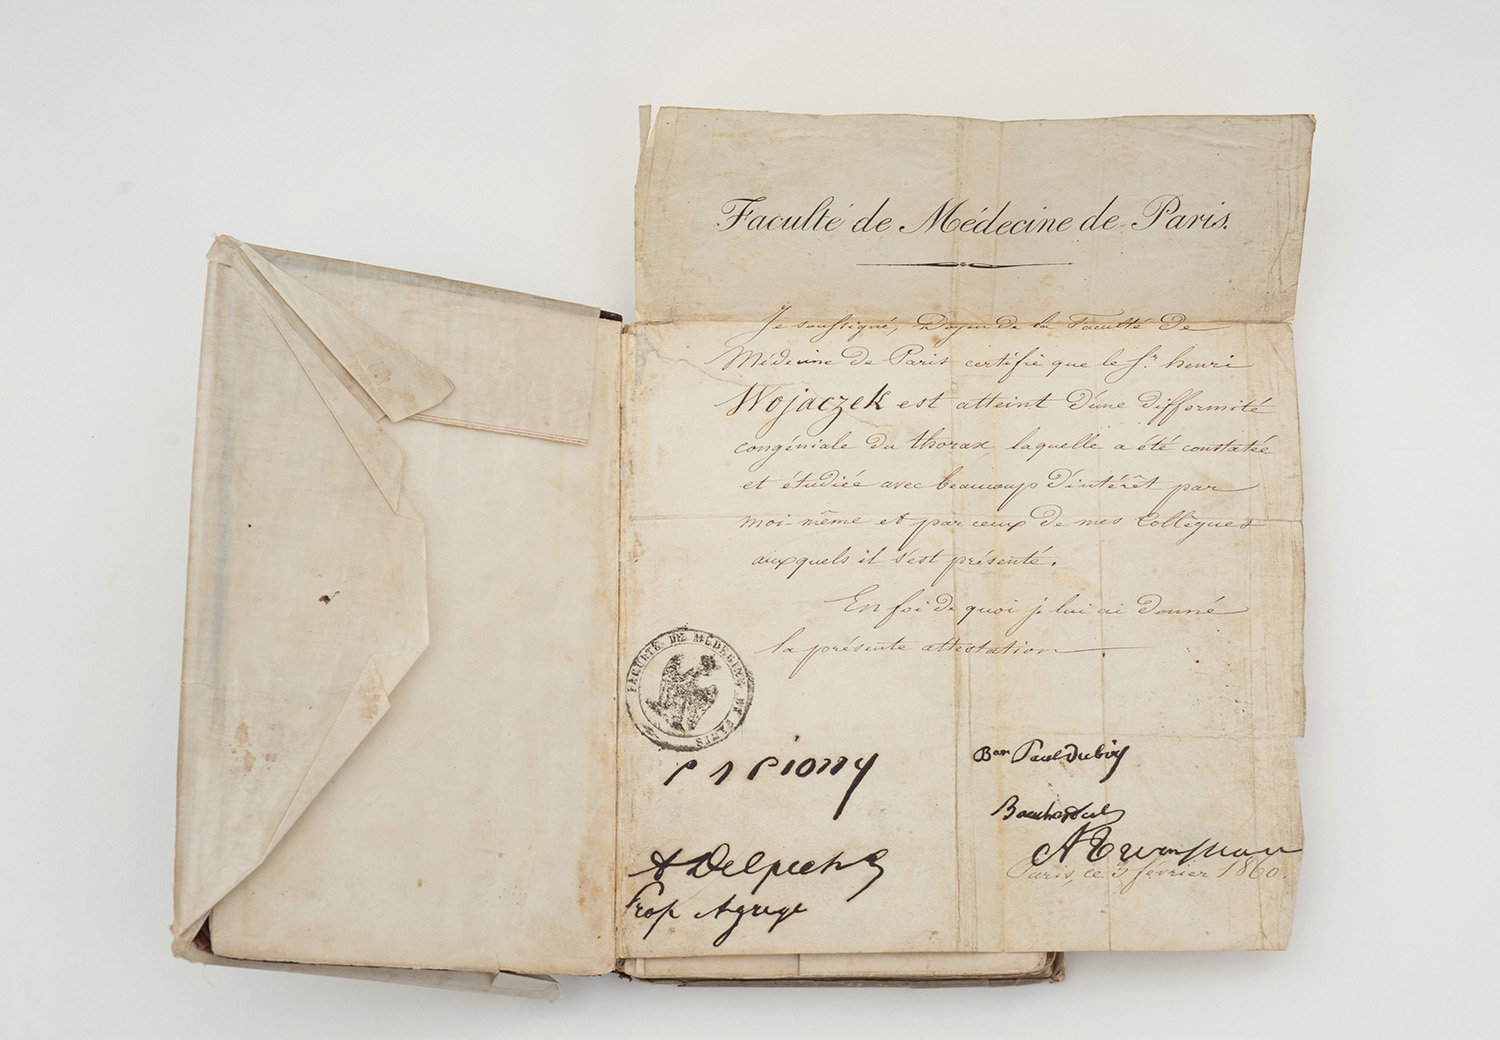 Faculté de Médecine de Paris.
Je soussigné, Doyen de la Faculté de
Médecine de Paris certifie que le Sr. henri
Wojaczek est atteint d'une difformité
congéniale du thorax, laquelle a été constatée
et étudiée avec beaucoup d'intérêt par
moi-même et par ceux de mes Collègues
auxquels il s'est présenté.
En foi de quoi je lui ai donné
la présente attestation
FACULTÉ DE MÉDECINE DE PARIS
P A Piorry
Bon Paul Dubois
Bouchardat
A Delpech
Prof Agrégé
Paris, ce 3 février 1860.